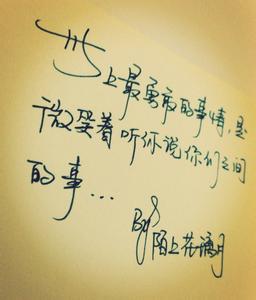 世上最勇敢的事情,是
微笑着听你说你们之间
的事...
By 陌上花漓月